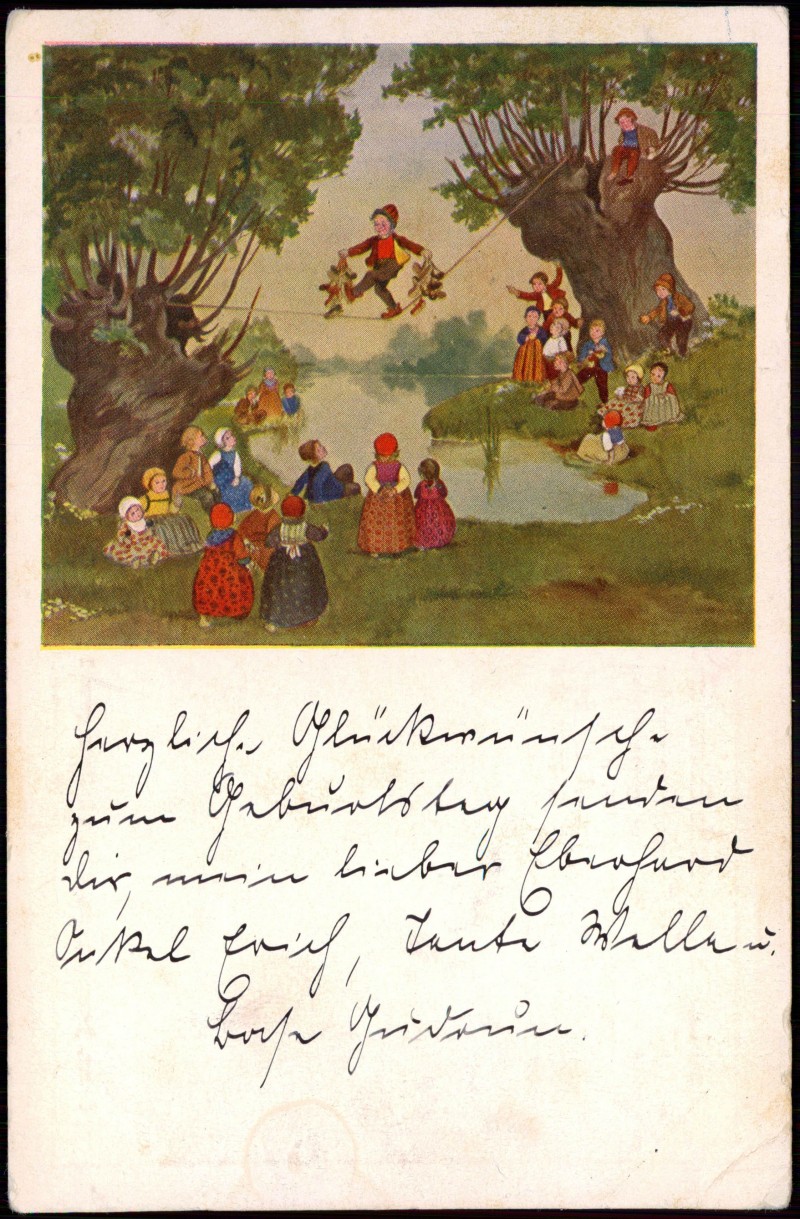 Herzliche Glückwünsche
zum Geburtstag senden
dir, mein lieber Eberhard
Onkel Erich, Tante Wella u.
Base Gudrun.